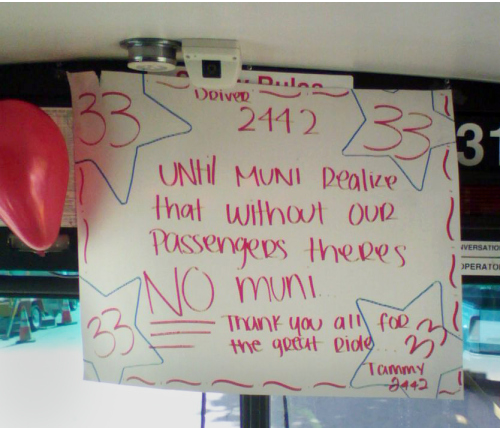 Rules
Driver
2442
33
33
31
UNtil MUNI Realize
that without OUR
Passengers theres
NO muni..
Thank you all for
the great Ride....
33
33
Tammy
2442
NVERSATIO
OPERATOR